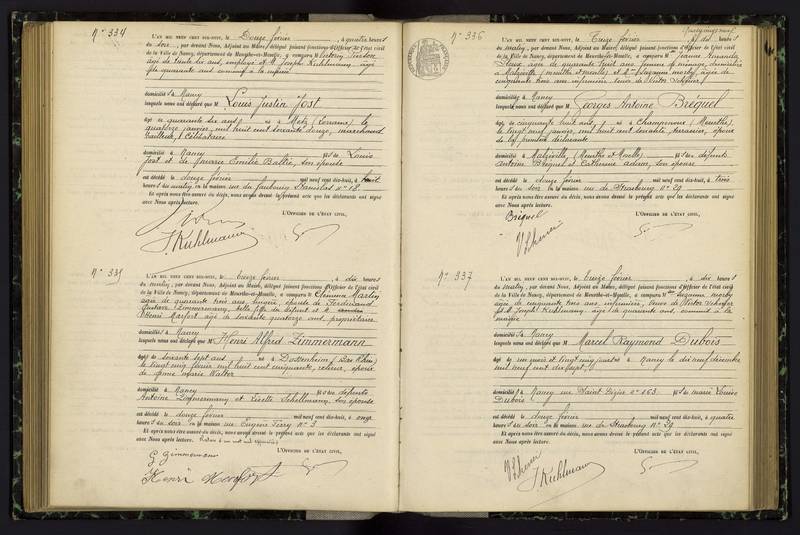 N° 334
L'AN MIL NEUF CENT DIX-HUIT, le Douze février, à quatre heures
du soir, par devant Nous, Adjoint au Maire, délégué faisant fonctions d'Officier de l'état civil
de la Ville de Nancy, département de Meurthe-et-Moselle, a comparu M
âgé de trente dix ans, employé et M Joseph Kuhlmann, âgé
de quarante ans commis à la mairie
domiciliés à Nancy
lesquels nous ont déclaré que M Louis Justin Jost
âgé de quarante six ans, né à Metz (Lorraine) le
quatorze janvier, mil huit cent soixante douze, marchand
tailleur, Célibataire
domicilié à Nancy fils de Louis
Jost et de Emilie Baltié, son épouse
est décédé le douze février mil neuf cent dix-huit, à huit
heures du matin, en la maison rue du faubourg Stanislas n° 18.
Et après nous être assuré du décès, nous avons dressé le présent acte que les déclarants ont signé
avec Nous après lecture.
L'OFFICIER DE L'ÉTAT CIVIL,
J. Kuhlmann
N° 335
L'AN MIL NEUF CENT DIX-HUIT, le treize février, à dix heures
du matin, par devant Nous, Adjoint au Maire, délégué faisant fonctions d'Officier de l'état civil
de la Ville de Nancy, département de Meurthe-et-Moselle, a comparu M Clemma Martin
âgée de quarante trois ans, lingère, épouse de Ferdinand
Gustave Zimmermann, belle fille du défunt et M
Henri âgé de soixante quatorze ans, propriétaire
domiciliés à Nancy
lesquels nous ont déclaré que M Henri Alfred Zimmermann
âgé de soixante sept ans né à Dossenheim (Bas Rhin)
le vingt cinq février mil huit cent cinquante, retiré, époux
de Marie Walter
domicilié à Nancy fils des défunts
Antoine Zimmermann et Lisette Schellmann, son épouse
est décédé le douze février mil neuf cent dix-huit, à onze
heures du soir en la maison rue Eugène Ferry n° 3
Et après nous être assuré du décès, nous avons dressé le présent acte que les déclarants ont signé
avec Nous après lecture.
L'OFFICIER DE L'ÉTAT CIVIL,
G Zimmermann
Henri
N° 336
L'AN MIL NEUF CENT DIX-HUIT, le Treize février, à dix heures
du matin, par devant Nous, Adjoint au Maire, délégué faisant fonctions d'Officier de l'état civil
de la Ville de Nancy, département de Meurthe-et-Moselle, a comparu Mme Jeanne Amanda
âgée de quarante huit ans, femme de ménage, domiciliée
à Malzéville (meurthe et moselle) et Suzanne morby, âgée de
cinquante trois ans infirmière, veuve de Victor
domiciliés à Nancy
lesquels nous ont déclaré que M Georges Antoine Bréguel
âgé de cinquante huit ans, né à Champenoux (Meurthe),
le vingt neuf janvier, mil huit cent soixante, terrassier, époux
de la première déclarante
domicilié à Malzéville, (Meurthe et Moselle) fils des défunts
Antoine Bréguel et Catherine Adam, son épouse
est décédé le douze février mil neuf cent dix-huit, à trois
heures du soir en la maison rue de Strasbourg n° 29
Et après nous être assuré du décès, nous avons dressé le présent acte que les déclarants ont signé
avec Nous après lecture.
L'OFFICIER DE L'ÉTAT CIVIL,
Bréguel
N° 337
L'AN MIL NEUF CENT DIX-HUIT, le treize février, à dix heures
du matin, par devant Nous, Adjoint au Maire, délégué faisant fonctions d'Officier de l'état civil
de la Ville de Nancy, département de Meurthe-et-Moselle, a comparu Mme Suzanne morby
âgée de cinquante trois ans, infirmière, veuve de Victor
et M Joseph Kuhlmann âgé de quarante ans, commis à la
mairie
domiciliés à Nancy
lesquels nous ont déclaré que M Marcel Raymond Dubois
âgé de un mois et vingt cinq jours né à Nancy le dix neuf décembre
mil neuf cent dix sept,
domicilié à Nancy rue Saint Dizier n° 163 fils de Marie Louise
Dubois
est décédé le douze février mil neuf cent dix-huit, à quatre
heures du soir en la maison rue de Strasbourg N° 29
Et après nous être assuré du décès, nous avons dressé le présent acte que les déclarants ont signé
avec Nous après lecture.
L'OFFICIER DE L'ÉTAT CIVIL,
J. Kuhlmann